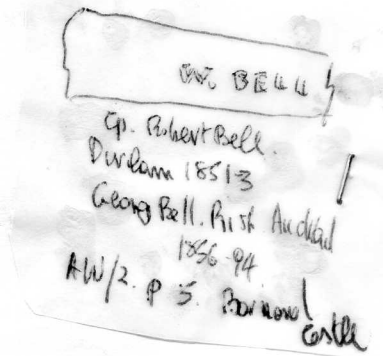 W. BELL
Cp. Robert Bell.
Durham 1851-3
Georg Bell. Bish Auckland
1856-94.
AW/2. p 5. Barnard
Castle